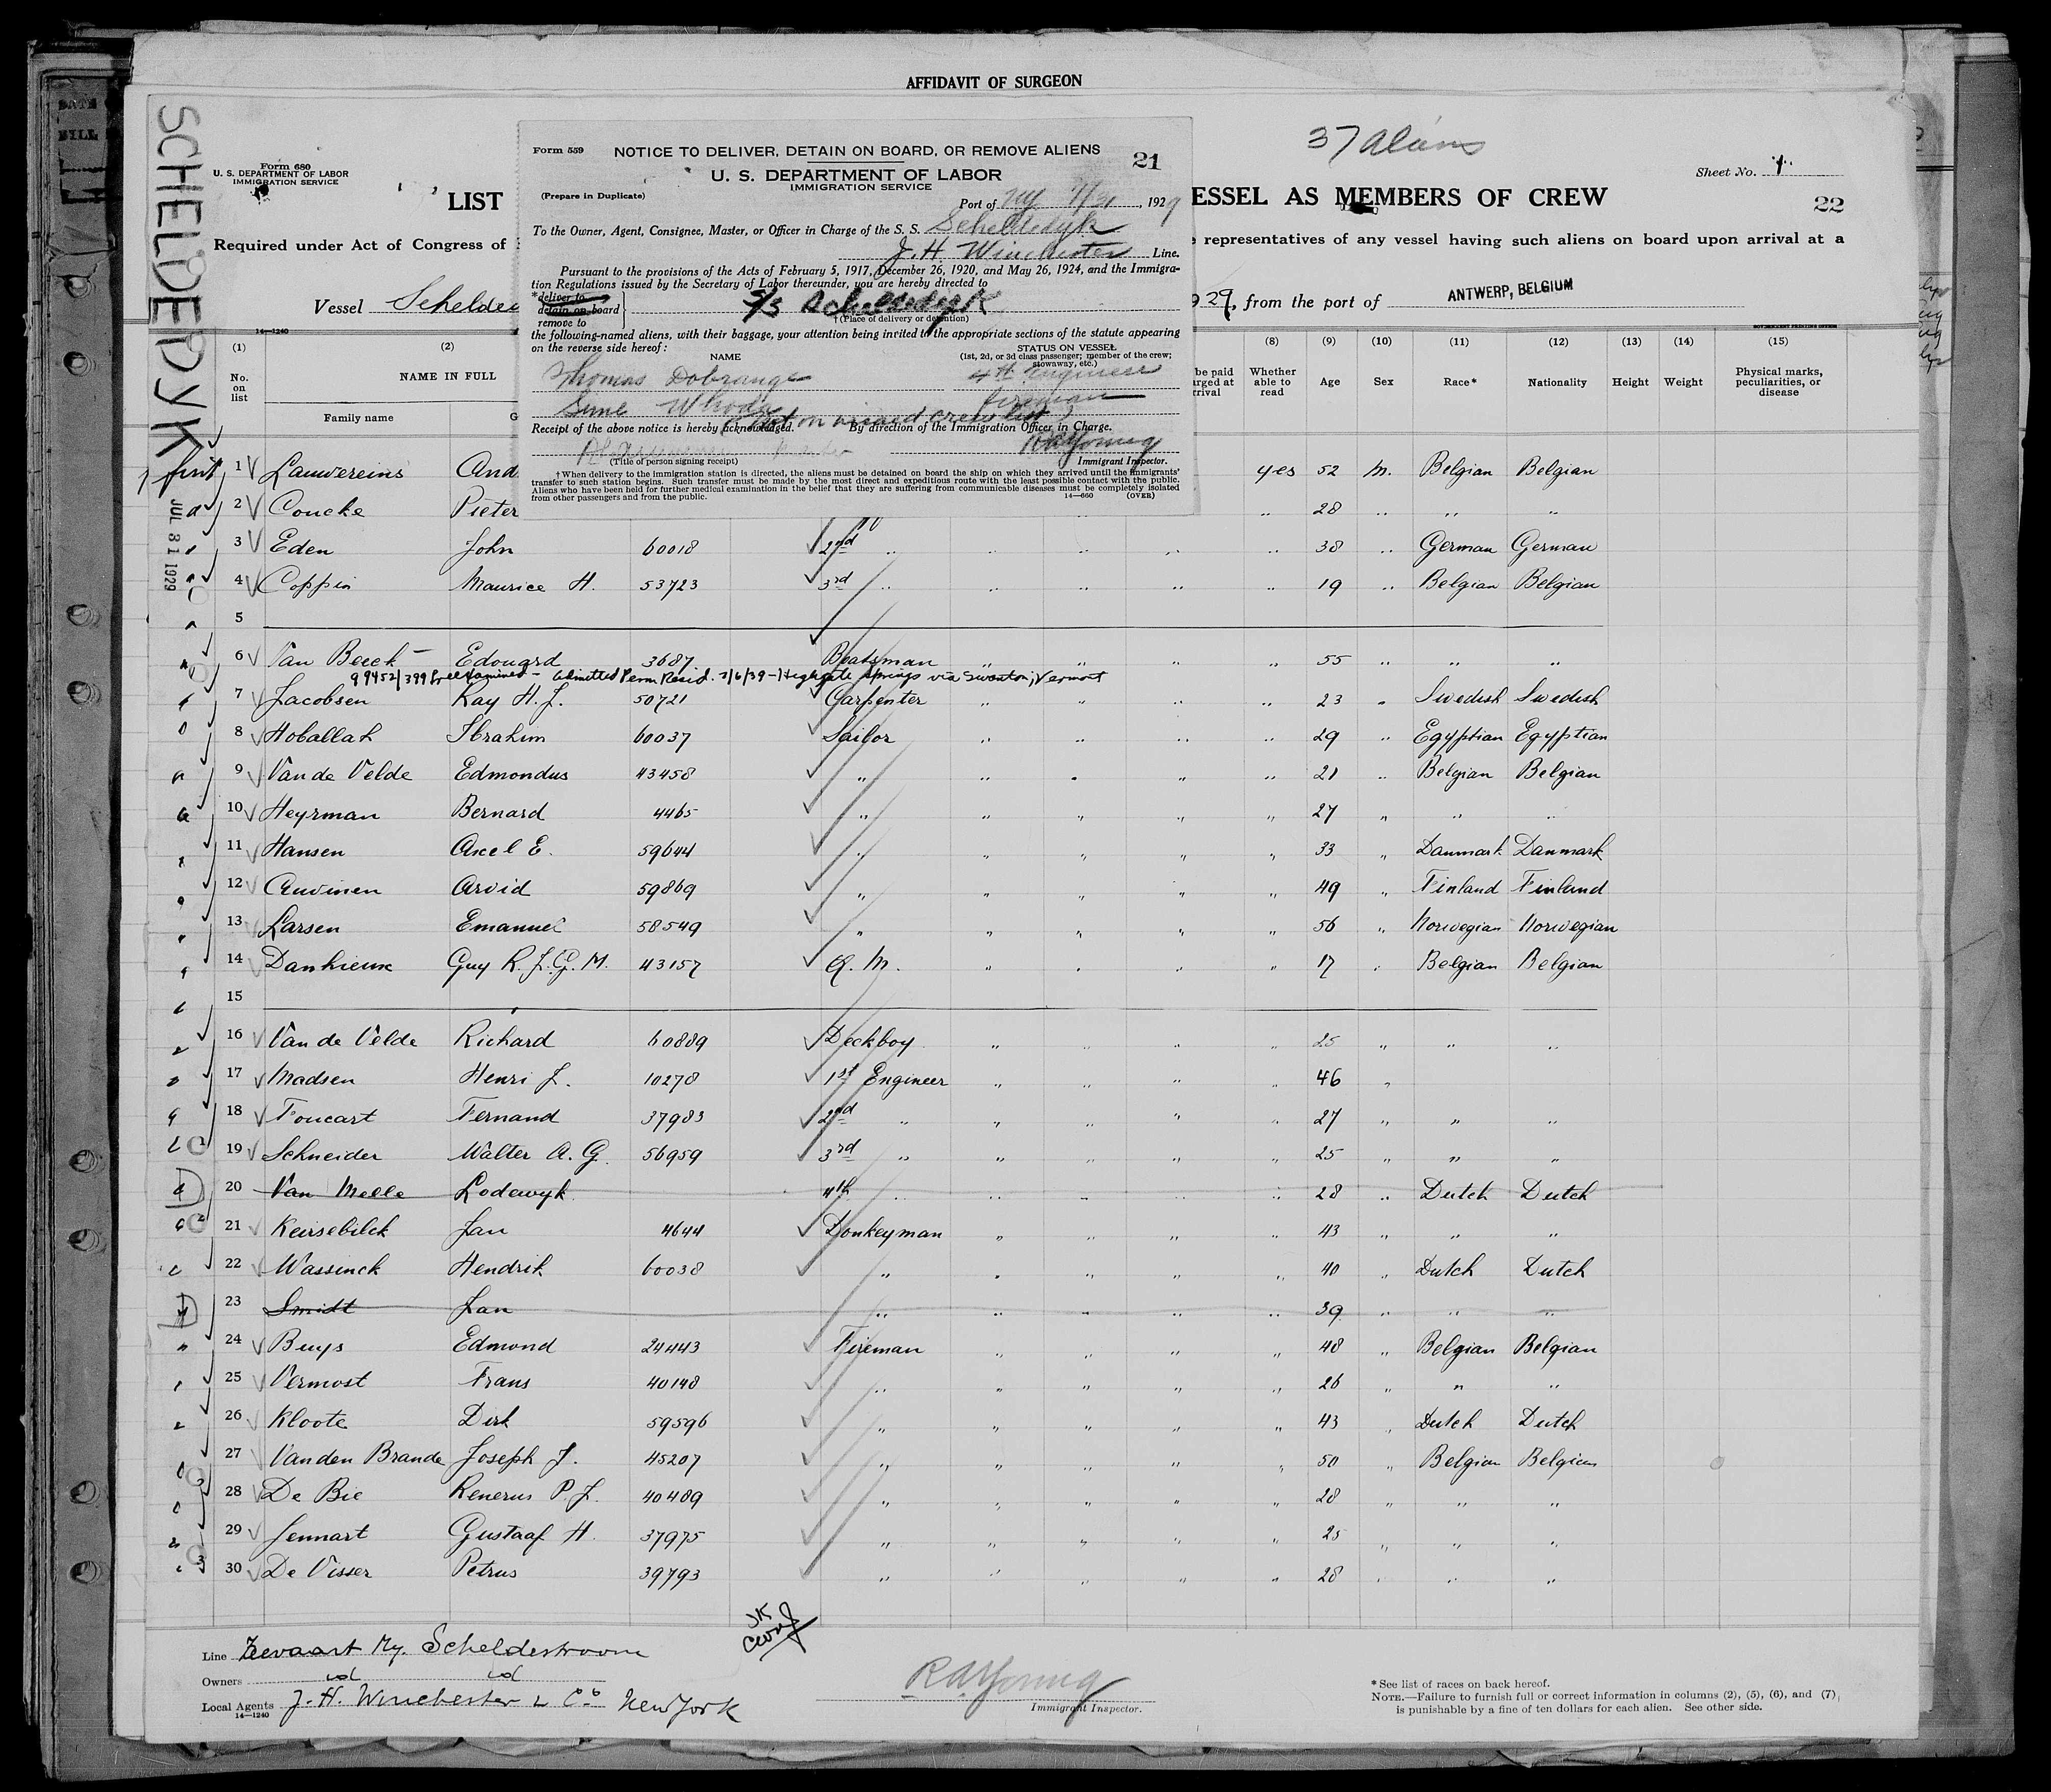 AFFIDAVIT OF SURGEON
SCHELDEDYK
JUL 31 1929
Form 680
U. S. DEPARTMENT OF LABOR
IMMIGRATION SERVICE
37 Aliens
Sheet No. 1
22
LIST
ESSEL AS MEMBERS OF CREW
Required under Act of Congress of
representatives of any vessel having such aliens on board upon arrival at a
Vessel Schelded
29, from the port of ANTWERP, BELGIUM
14—1240
Form 559
NOTICE TO DELIVER, DETAIN ON BOARD, OR REMOVE ALIENS
21
U. S. DEPARTMENT OF LABOR
IMMIGRATION SERVICE
(Prepare in Duplicate)
Port of NY 7/31, 1929
To the Owner, Agent, Consignee, Master, or Officer in Charge of the S. S. Scheldedyk
J. H. Winchester Line.
Pursuant to the provisions of the Acts of February 5, 1917, December 26, 1920, and May 26, 1924, and the Immigra-
tion Regulations issued by the Secretary of Labor thereunder, you are hereby directed to
*deliver to
detain on board S/S Scheldedyk
remove to
†(Place of delivery or detention)
the following-named aliens, with their baggage, your attention being invited to the appropriate sections of the statute appearing
on the reverse side hereof:
NAME
STATUS ON VESSEL
(1st, 2d, or 3d class passenger; member of the crew;
stowaway, etc.)
Thomas Dobrange 4th Engineer
fireman
not on visaed crew list
Receipt of the above notice is hereby acknowledged.
By direction of the Immigration Officer in Charge.
RA Young
(Title of person signing receipt)
Immigrant Inspector.
†When delivery to the immigration station is directed, the aliens must be detained on board the ship on which they arrived until the immigrants'
transfer to such station begins. Such transfer must be made by the most direct and expeditious route with the least possible contact with the public.
Aliens who have been held for further medical examination in the belief that they are suffering from communicable diseases must be completely isolated
from other passengers and from the public.
14—660 (OVER)
(1) (2) (8) (9) (10) (11) (12) (13) (14) (15)
No. on list NAME IN FULL Whether able to read Age Sex Race* Nationality Height Weight Physical marks, peculiarities, or disease
Family name
first 1 Lauwereins And yes 52 m. Belgian Belgian
2 Coucke Pieter .. 28 .. .. ..
3 Eden John 60018 2nd .. .. .. .. .. 38 .. German German
4 Coppin Maurice H. 53723 3rd .. .. .. .. .. 19 .. Belgian Belgian
5
6 Van Beeck Edouard 3687 Boatsman .. .. .. .. 55 .. .. ..
99452/399 Preexamined - Admitted Perm. Resid. 2/6/39 - Highgate Springs via Swanton, Vermont
7 Jacobsen Kay H. J. 50721 Carpenter .. .. .. .. 23 .. Swedish Swedish
8 Hoballah Ibrahim 60037 Sailor .. .. .. .. 29 .. Egyptian Egyptian
9 Van de Velde Edmondus 43458 " .. .. .. .. 21 .. Belgian Belgian
10 Heyrman Bernard 4465 " " " " " 27 " " "
11 Hansen Axel E. 59644 " " " " " 33 " Danmark Danmark
12 Auvinen Arvid 59869 " " " " " 49 " Finland Finland
13 Larsen Emanuel 58549 " " " " " 56 " Norwegian Norwegian
14 Danhieux Guy R. J. G. M. 43157 Q. M. " " " " 17 " Belgian Belgian
15
16 Van de Velde Richard 60889 Deckboy " " " " 25 " " "
17 Madsen Henri J. 10278 1st Engineer " " " " 46 "
18 Foucart Fernand 37983 2nd " " " " " 27 " " "
19 Schneider Walter A. G. 56959 3rd " " " " " 25 " " "
20 Van Melle Lodewyk 4th " " " " " 28 " Dutch Dutch
21 Keirsebilck Jan 4644 Donkeyman " " " " 43 " " "
22 Wassinck Hendrik 60038 " " " " " 40 " Dutch Dutch
23 Smidt Jan " " " " " 39 " " "
24 Buys Edmond 24443 Fireman " " " " 48 " Belgian Belgian
25 Vermost Frans 40148 " " " " " 26 " " "
26 Kloote Dirk 59596 " " " " " 43 " Dutch Dutch
27 Van den Brande Joseph J. 45207 " " " " " 50 " Belgian Belgian
28 De Bie Renerus P. J. 40489 " " " " " 28 " " "
29 Jennart Gustaaf H. 37975 " " " " " 25 " " "
30 De Visser Petrus 39793 " " " " " 28 " " "
Line Zeevaart My. Scheldestroom
Owners id id
Local Agents J. H. Winchester & Co New York
14—1240
RA Young
Immigrant Inspector.
*See list of races on back hereof.
NOTE.—Failure to furnish full or correct information in columns (2), (5), (6), and (7),
is punishable by a fine of ten dollars for each alien. See other side.